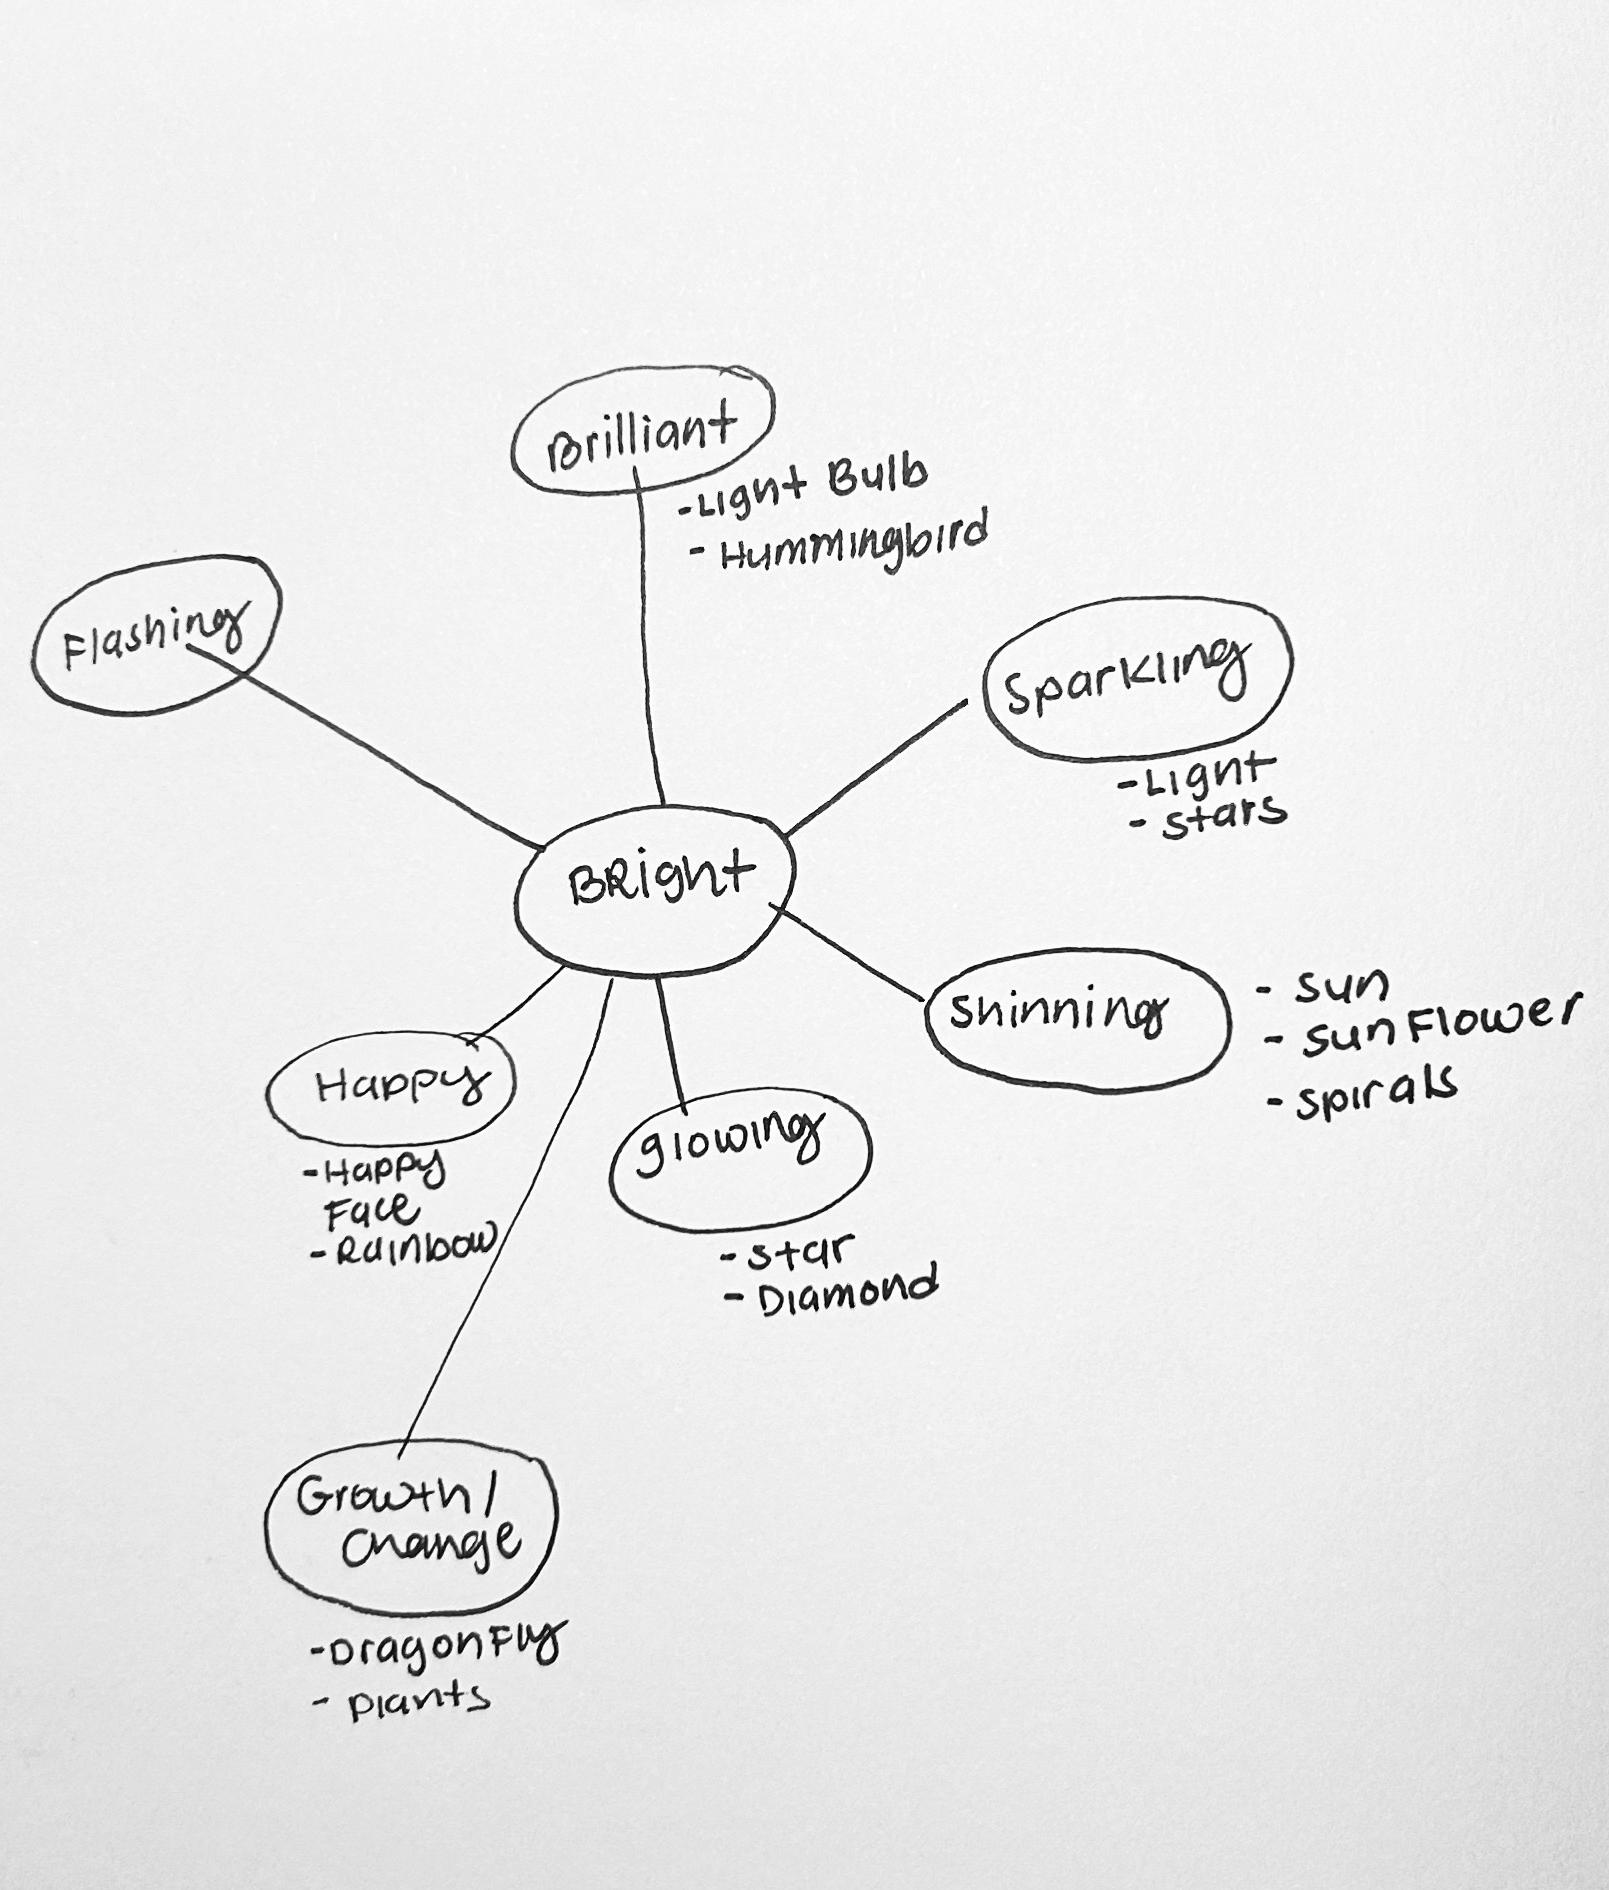 Brilliant
-Light Bulb
- Hummingbird
Flashing
Sparkling
-Light
- Stars
BRight
Shinning
- Sun
- SunFlower
- Spirals
Happy
-Happy
Face
-Rainbow
glowing
- Star
- Diamond
Growth/
Change
-DragonFly
- plants